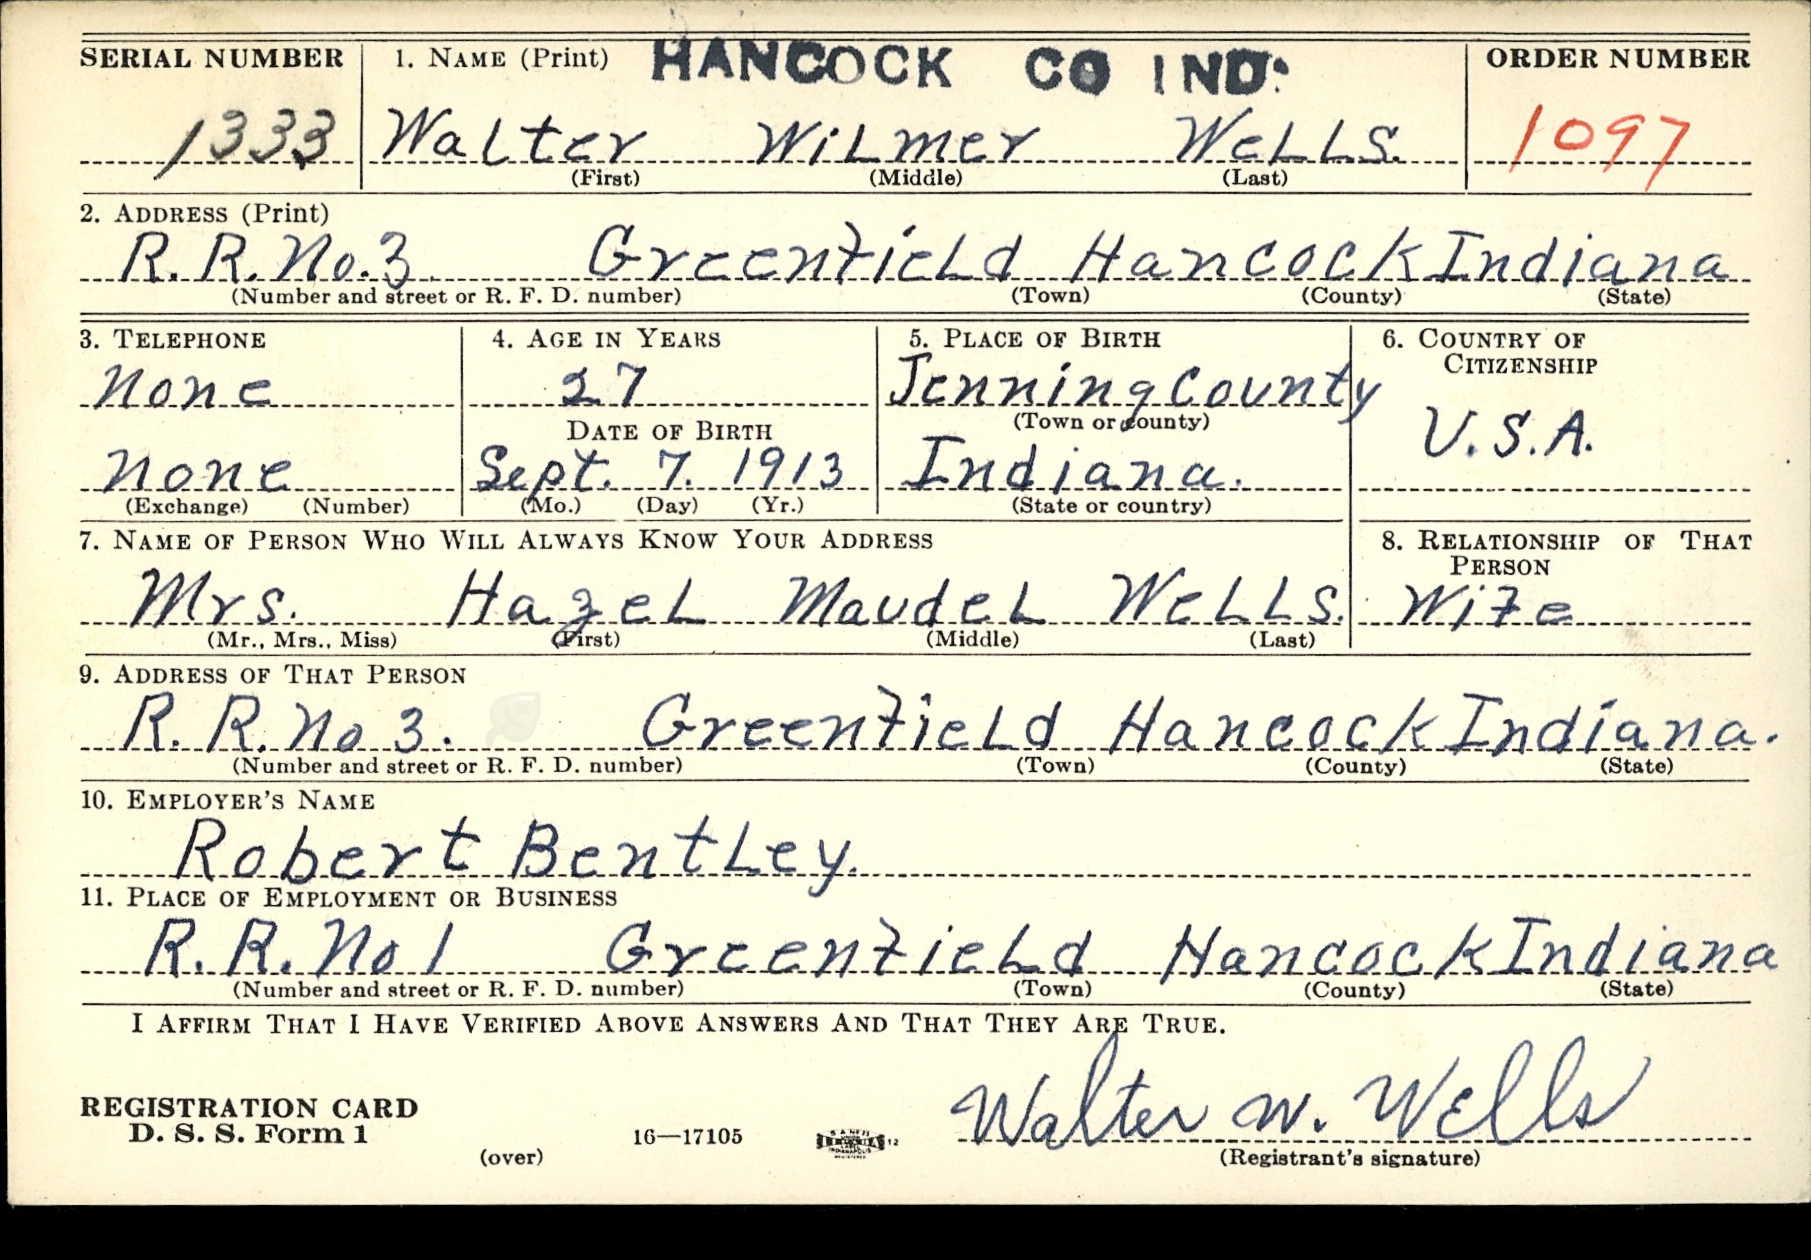 SERIAL NUMBER 1. NAME (Print) HANCOCK CO IND. ORDER NUMBER
1333 Walter Wilmer Wells. 1097
(First) (Middle) (Last)
2. ADDRESS (Print)
R. R. No. 3. Greenfield Hancock Indiana
(Number and street or R. F. D. number) (Town) (County) (State)
3. TELEPHONE 4. AGE IN YEARS 5. PLACE OF BIRTH 6. COUNTRY OF
CITIZENSHIP
None 27 Jenning County
(Town or county)
DATE OF BIRTH U.S.A.
None Sept. 7. 1913 Indiana.
(Exchange) (Number) (Mo.) (Day) (Yr.) (State or country)
7. NAME OF PERSON WHO WILL ALWAYS KNOW YOUR ADDRESS 8. RELATIONSHIP OF THAT
PERSON
Mrs. Hazel Maudel Wells. Wife
(Mr., Mrs., Miss) (First) (Middle) (Last)
9. ADDRESS OF THAT PERSON
R. R. No 3. Greenfield Hancock Indiana.
(Number and street or R. F. D. number) (Town) (County) (State)
10. EMPLOYER'S NAME
Robert Bentley.
11. PLACE OF EMPLOYMENT OR BUSINESS
R. R. No 1 Greenfield Hancock Indiana
(Number and street or R. F. D. number) (Town) (County) (State)
I AFFIRM THAT I HAVE VERIFIED ABOVE ANSWERS AND THAT THEY ARE TRUE.
REGISTRATION CARD
D. S. S. Form 1 16—17105 12 Walter W. Wells
(over) (Registrant's signature)